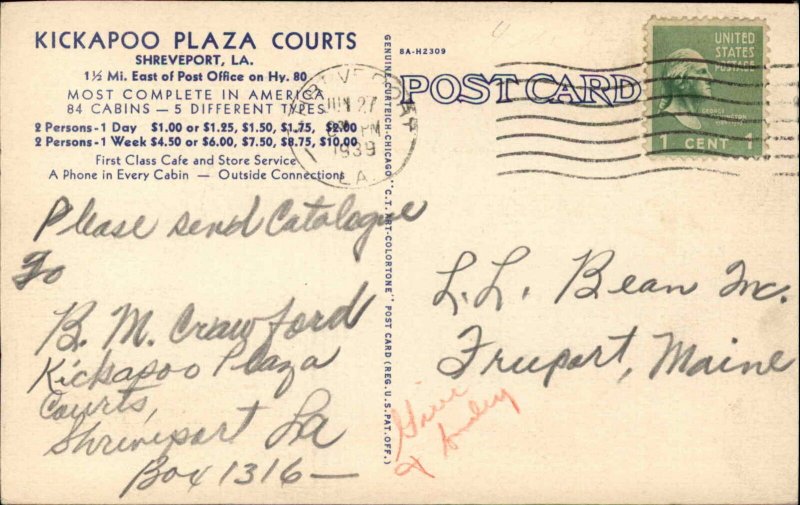 KICKAPOO PLAZA COURTS
SHREVEPORT, LA.
1½ Mi. East of Post Office on Hy. 80
MOST COMPLETE IN AMERICA
84 CABINS — 5 DIFFERENT TYPES
2 Persons - 1 Day $1.00 or $1.25, $1.50, $1.75, $2.00
2 Persons - 1 Week $4.50 or $6.00, $7.50, $8.75, $10.00
First Class Cafe and Store Service
A Phone in Every Cabin — Outside Connections
Please send Catalogue
To
B. M. Crawford
Kickapoo Plaza
Courts,
Shreveport La
Box 1316—
GENUINE CURTEICH-CHICAGO "C.T. ART-COLORTONE" POST CARD (REG. U.S. PAT. OFF.)
8A-H2309
POST CARD
SHREVEPORT
JUN 27
PM
1939
LA.
UNITED
STATES
POSTAGE
GEORGE
WASHINGTON
1 CENT 1
L. L. Bean Inc.
Freeport, Maine